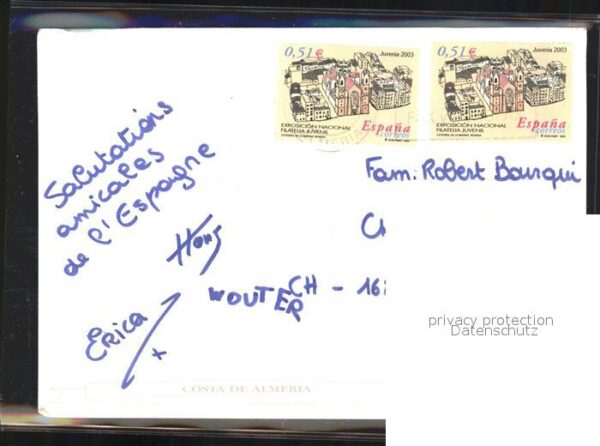 0,51€ Juvenia 2003
EXPOSICIÓN NACIONAL
FILATELIA JUVENIL
España
correos
0,51€ Juvenia 2003
EXPOSICIÓN NACIONAL
FILATELIA JUVENIL
España
correos
Salutations
amicales
de l'Espagne
Hans
Erica
WOUTER
Fam. Robert Bourqui
CH - 16
privacy protection
Datenschutz
COSTA DE ALMERIA